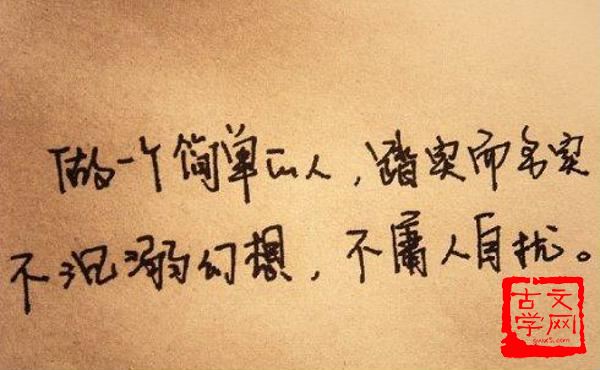 做一个简单的人，踏实而务实
不沉溺幻想，不庸人自扰。
古文
学网